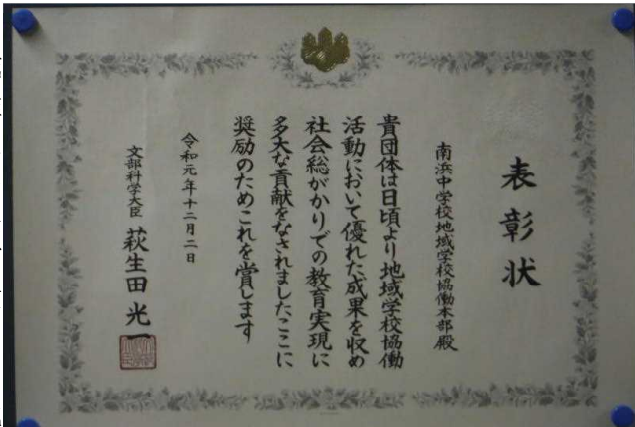 表彰状
南浜中学校地域学校協働本部殿
貴団体は日頃より地域学校協働
活動において優れた成果を収め
社会総がかりでの教育実現に
多大な貢献をなされましたここに
奨励のためこれを賞します
令和元年十二月二日
文部科学大臣 萩生田光一